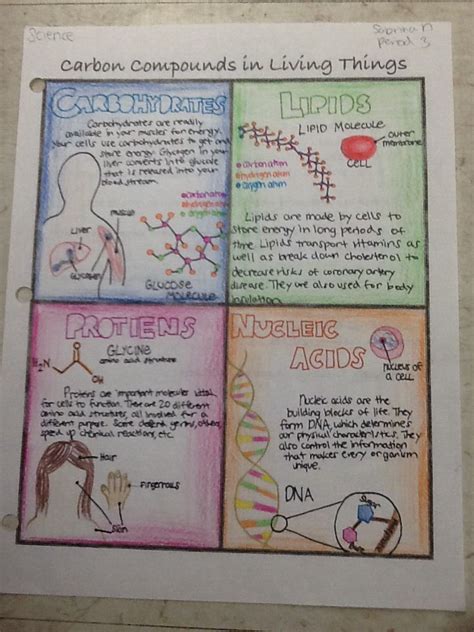 Science
Sabrina N
Period 3
Carbon Compounds in Living Things
CARBOHYDRATES
Carbohydrates are readily
available in your muscles for energy.
Your cells use carbohydrates to get and
store energy. Glycogen in your
liver converts into glucose
that is released into your
blood stream.
carbon atom
hydrogen atom
oxygen atom
muscle
liver
Glycogen
GLUCOSE
MOLECULE
LIPIDS
LIPID MOLECULE
outer
membrane
CELL
carbon atom
hydrogen atom
oxygen atom
Lipids are made by cells to
store energy in long periods of
time. Lipids transport vitamins as
well as break down cholesterol to
decrease risks of coronary artery
disease. They are used for body
insulation
PROTIENS
GLYCINE
amino acid structure
H₂N
O
OH
Proteins are important molecules vital
for cells to function. There are 20 different
amino acid structures, all involved for a
different purpose. Some defend germs, others,
speed up chemical reactions, etc.
Hair
Fingernails
Skin
NUCLEIC
ACIDS
NUCLEUS OF
a CELL
Nucleic acids are the
building blocks of life. They
form DNA, which determines
our physical characteristics. They
also control the information
that makes every organism
unique.
DNA
Sugar